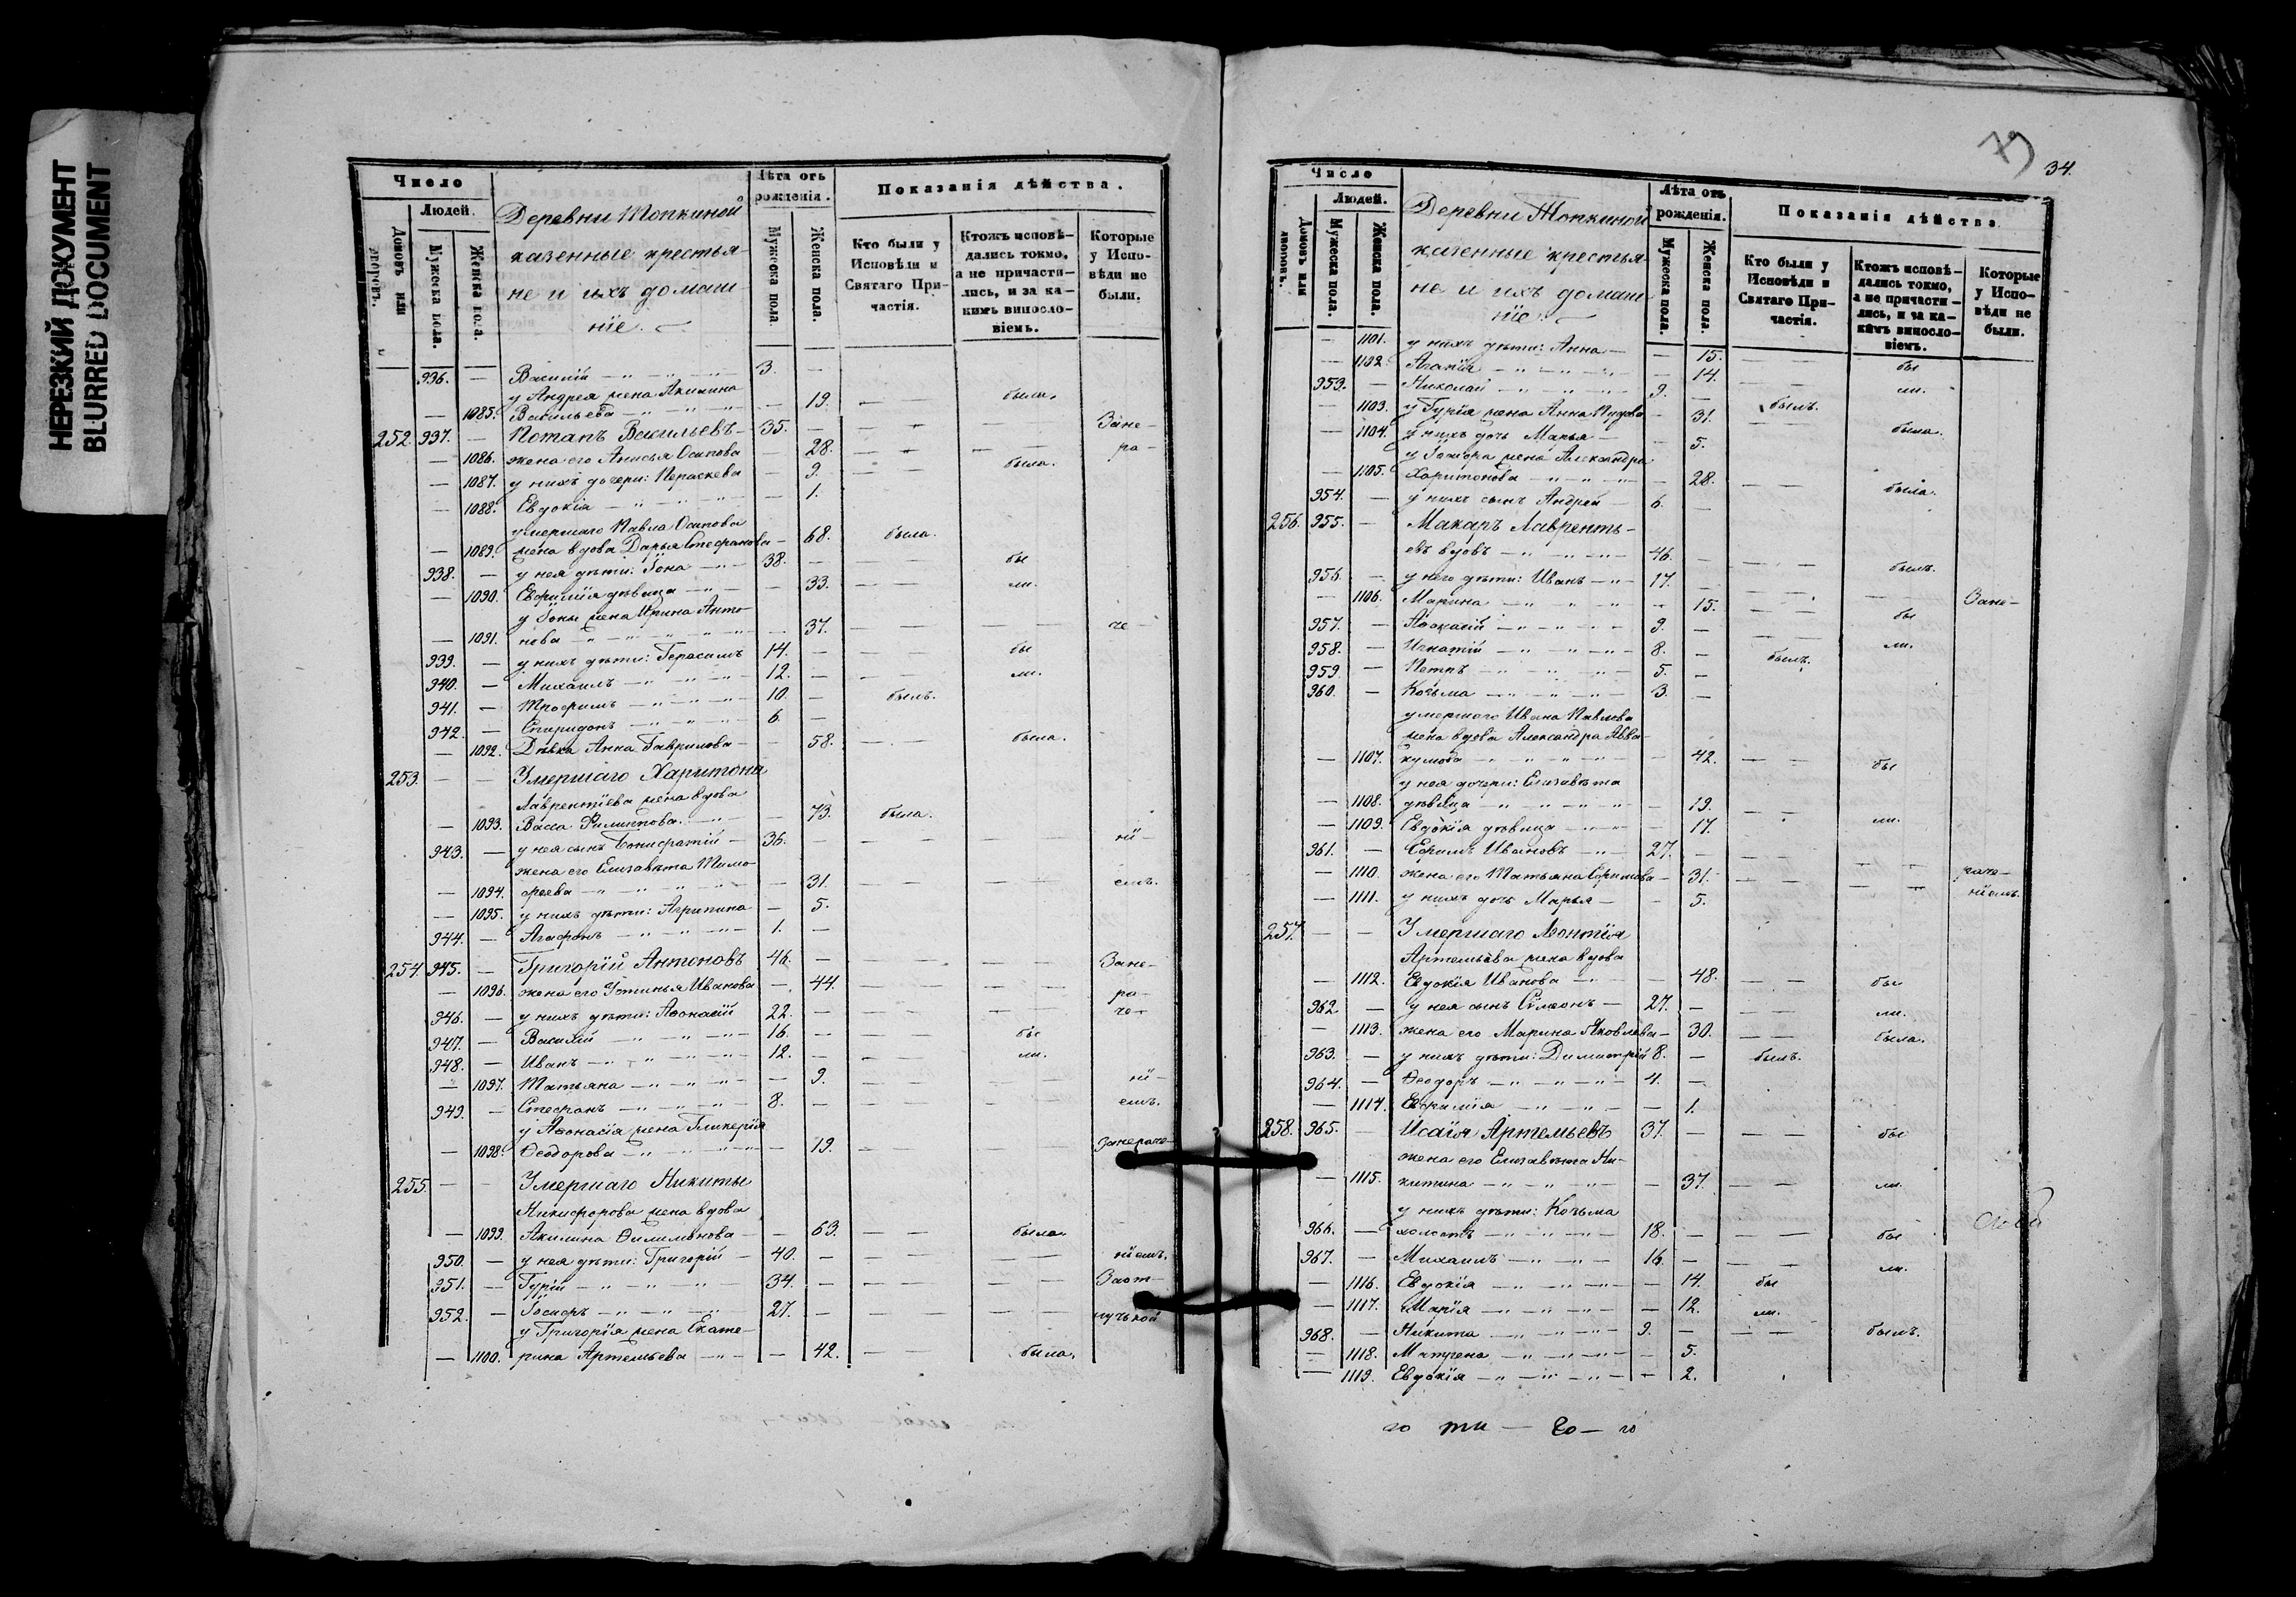 НЕРЕЗКИЙ ДОКУМЕНТ
BLURRED DOCUMENT
Число
Людей.
Домовъ или дворовъ.
Мужеска пола.
Женска пола.
Деревни Топкиной
казенные крестья-
не и ихъ домаш-
ніе.
Лѣта отъ рожденія.
Мужеска пола.
Женска пола.
Показанія дѣйства.
Кто были у Исповѣди и Святаго При-частія.
Ктожъ исповѣ-дались токмо, а не причасти-лись, и за ка-кимъ винсло-віемъ.
Которые у Испо-вѣди не были.
936. — Василій 3. —
у Андрея жена Акилина
— 1085. Васильева — 19. — была.
252. 937. — Потапъ Васильевъ 35. — Зане-
— 1086. жена его Анисья Осипова — 28. ра-
— 1087. у нихъ дочери: Параскева — 9. была.
— 1088. Евдокія — 1.
умершаго Павла Осипова
— 1089. жена вдова Дарья Стефанова — 68. была.
938. — у нея дѣти: Іона 38. — бы
— 1090. Евфимія дѣвица — 33. ли.
у Іоны жена Ирина Анто-
— 1091. нова — 37. че-
939. — у нихъ дѣти: Герасимъ 14. — бы
940. — Михаилъ 12. — ли.
941. — Трофимъ 10. — былъ.
942. — Спиридонъ 6. —
— 1092. Дѣвка Анна Гаврилова — 58. была.
253. — — Умершаго Харитона
Лаврентіева жена вдова
— 1093. Васса Филиппова. — 73. была.
943. — у нея сынъ Бонифатій 36. — ні-
жена его Елизавета Тимо-
— 1094. феева — 31. емъ.
— 1095. у нихъ дѣти: Агрипина — 5.
944. — Агафонъ 1. —
254. 945. — Григорій Антоновъ 46. — Зане-
— 1096. жена его Устинья Иванова — 44. ра-
946. — у нихъ дѣти: Аѳонасій 22. — че-
947. — Василій 16. — бы
948. — Иванъ 12. — ли.
— 1097. Татьяна — 9. ні-
949. — Стефанъ 8. — емъ.
у Аѳонасія жена Гликерія
— 1098. Ѳеодорова — 19. Занераче-
255. — — Умершаго Никиты
Никифорова жена вдова
— 1099. Акилина Филимонова — 63. была.
950. — у нея дѣти: Григорій 40. — ніемъ.
951. — Гурій 34. — Заот-
952. — Іосифъ 27. — лучкой
у Григорія жена Екате-
— 1100. рина Артемьева — 42. была.
79
34.
Число
Людей.
Домовъ или дворовъ.
Мужеска пола.
Женска пола.
Деревни Топкиной
казенные крестья-
не и ихъ домаш-
ніе.
Лѣта отъ рожденія.
Мужеска пола.
Женска пола.
Показанія дѣйства
Кто были у Исповѣди и Святаго При-частія.
Ктожъ исповѣ-дались токмо, а не причасти-лись, и за ка-кимъ винсло-віемъ.
Которые у Испо-вѣди не были.
— 1101. у нихъ дѣти: Анна — 15. бы
— 1102. Агапія — 14. ли.
953. — Николай 9. — былъ.
— 1103. у Гурія жена Анна — 31. была.
— 1104. у нихъ дочь Марья — 5.
у Іосифа жена Александра
— 1105. Харитонова — 28. была.
954. — у нихъ сынъ Андрей 6. —
256. 955. — Макаръ Лавренть-
евъ вдовъ 46. — былъ.
956. — у него дѣти: Иванъ 17. — Зане-
— 1106. Марина — 15. бы
957. — Аѳонасій 9. — ли.
958. — Игнатій 8. — былъ.
959. — Петръ 5. —
960. — Козьма 3. —
умершаго Ивана Павлова
жена вдова Александра Авва-
— 1107. кумова — 42. бы
у нея дочери: Елизавета
— 1108. дѣвица — 19.
— 1109. Евдокія дѣвица — 17. ли.
961. — Ефимъ Ивановъ 27. —
— 1110. жена его Татьяна Ефимова — 31. раче-
— 1111. у нихъ дочь Марья — 5. ніемъ.
257. — — Умершаго Леонтія
Артемьева жена вдова
— 1112. Евдокія Иванова — 48. бы
962. — у нея сынъ Симеонъ 27. — ли.
— 1113. жена его Марина Яковлева — 30. была.
963. — у нихъ дѣти: Димитрій 8. — былъ.
964. — Ѳеодоръ 4. —
— 1114. Евфимія — 1.
258. 965. — Исаія Артемьевъ 37. — бы
жена его Елизавета Ни-
— 1115. китина — 37. ли.
у нихъ дѣти: Козьма
966. — холостъ 18. — бы
967. — Михаилъ 16. — ли.
— 1116. Евдокія — 14. бы
— 1117. Марія — 12. ли.
968. — Никита 9. — былъ.
— 1118. Матрена — 5.
— 1119. Евдокія — 2.